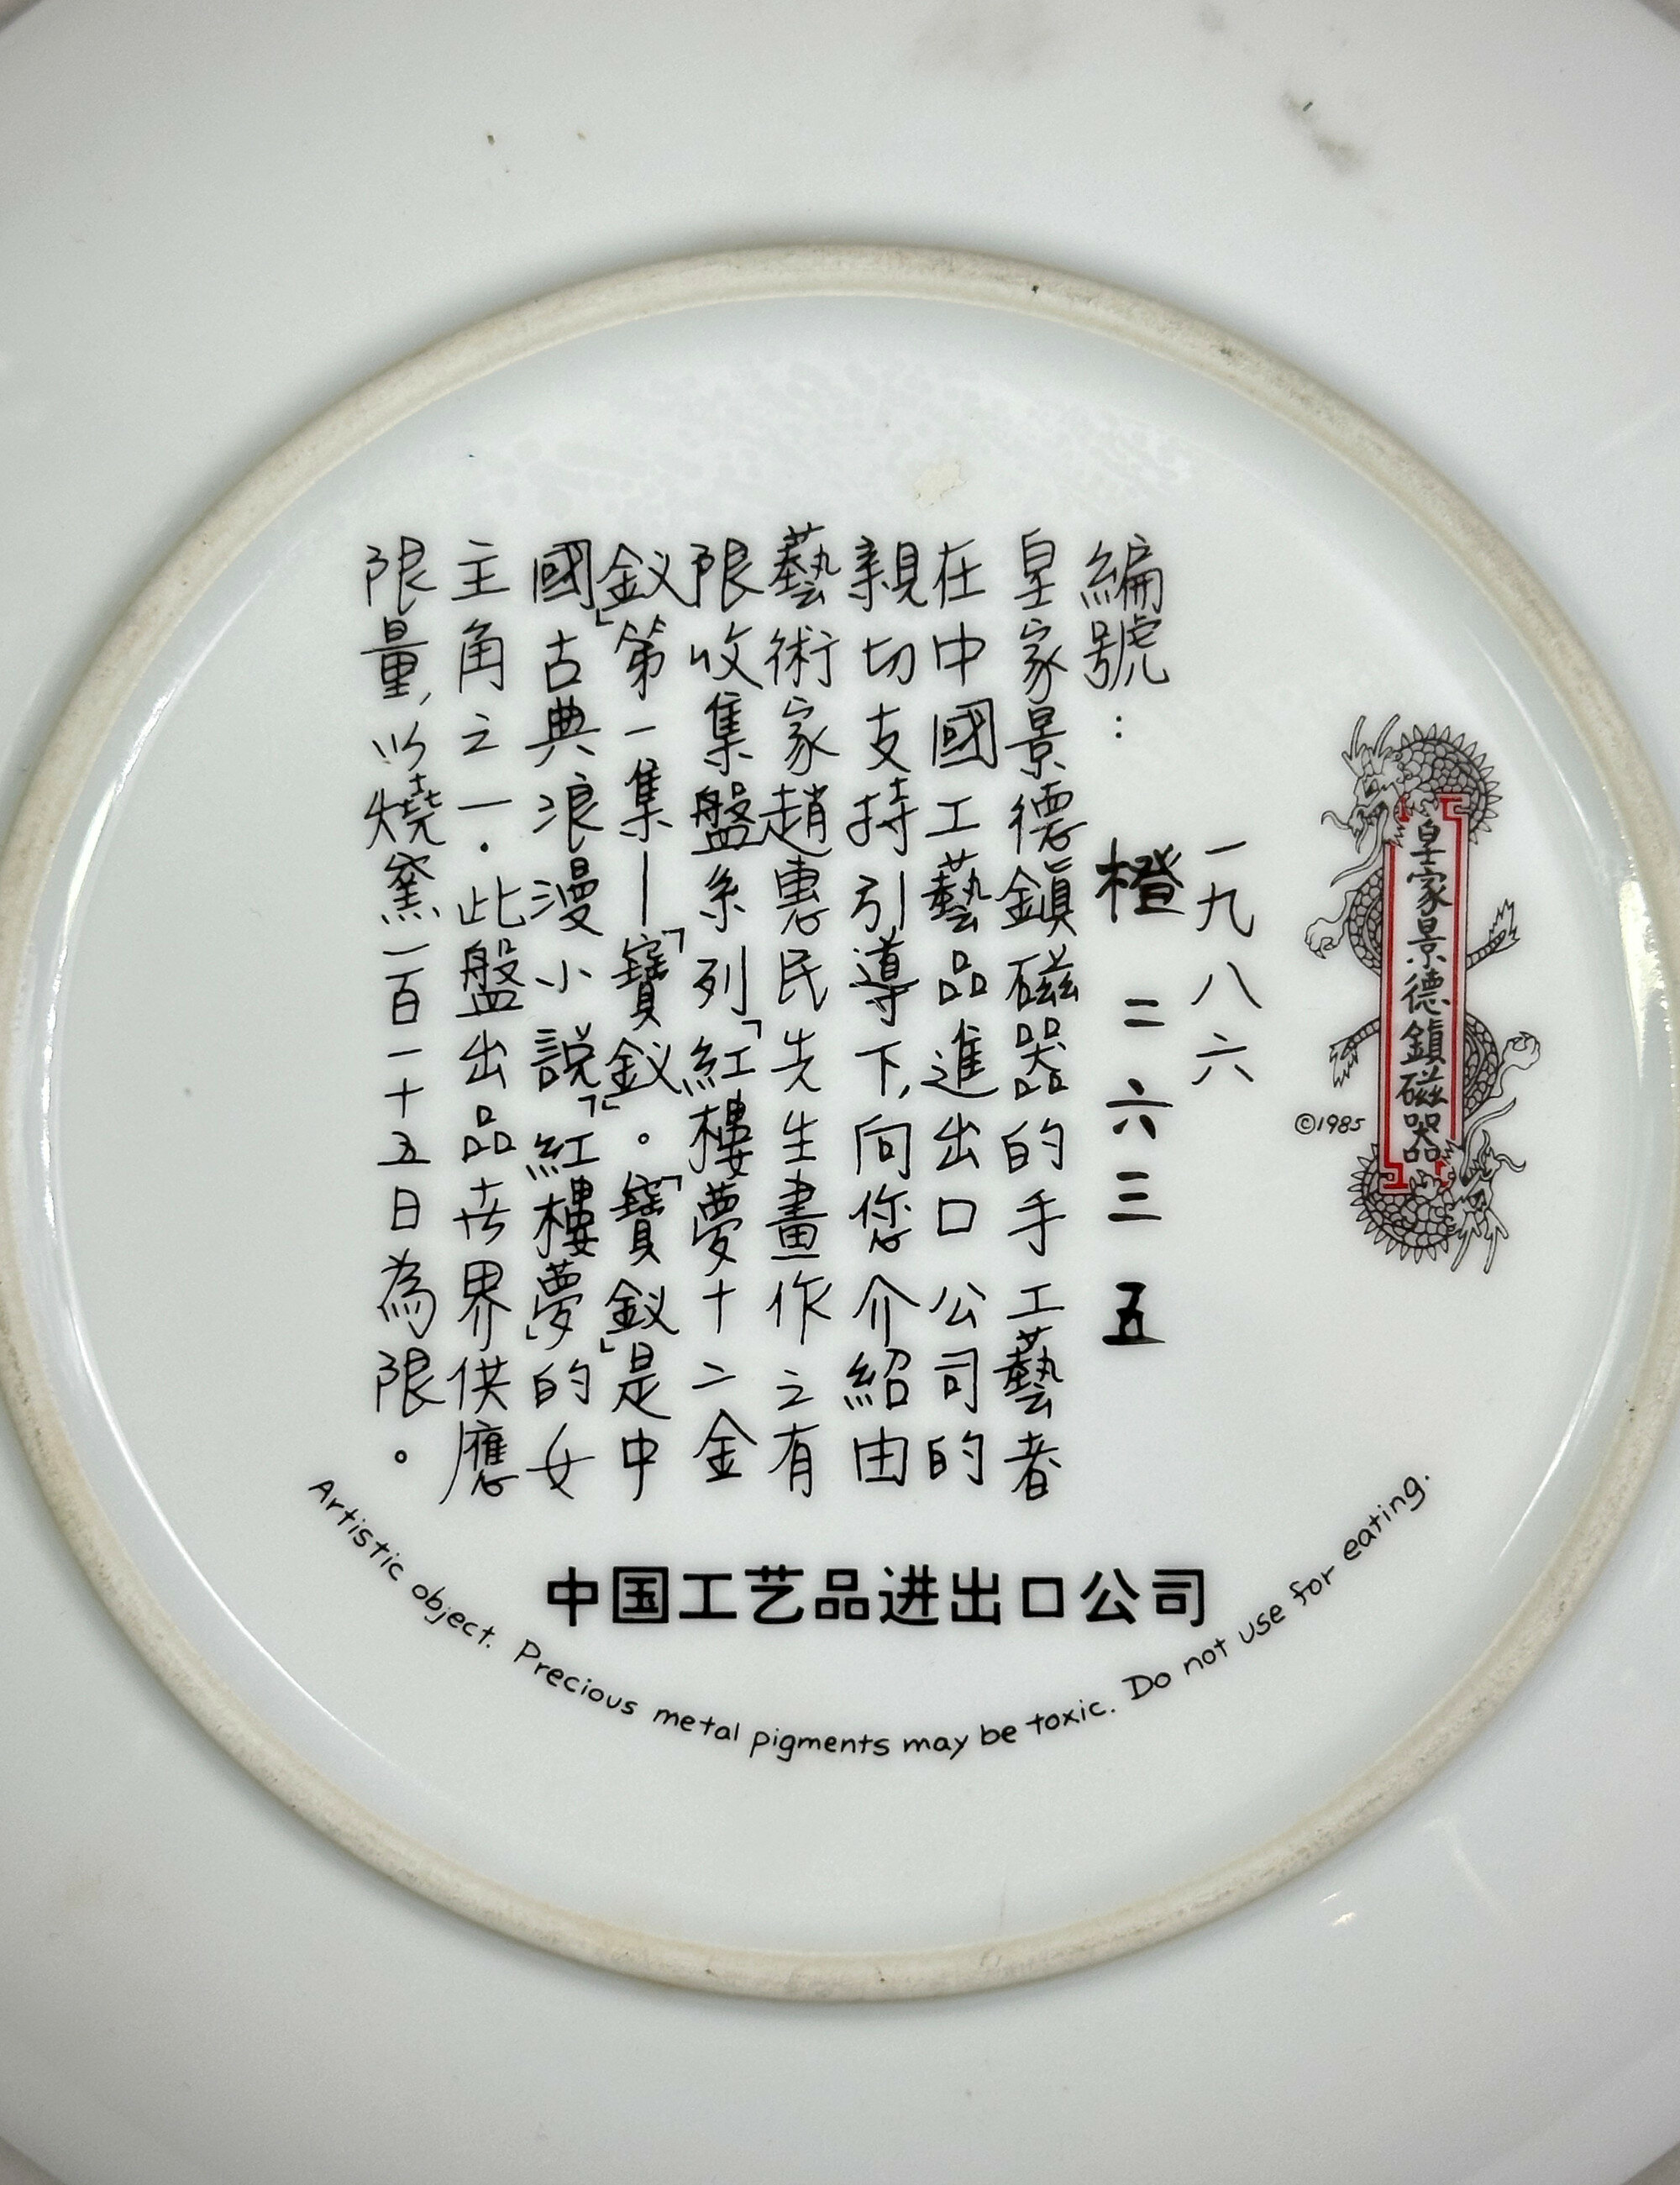 皇家景德鎮磁器
©1985
一九八六
編號：橙 二六三五
皇家景德鎮磁器的手工藝者
在中國工藝品進出口公司的
親切支持引導下，向您介紹由
藝術家趙惠民先生畫作之有
限收集盤系列「紅樓夢十二金
釵」第一集—「寶釵」。「寶釵」是中
國古典浪漫小說「紅樓夢」的女
主角之一．此盤出品世界供應
限量，以燒窯一百一十五日為限。
中国工艺品进出口公司
Artistic object. Precious metal pigments may be toxic. Do not use for eating.